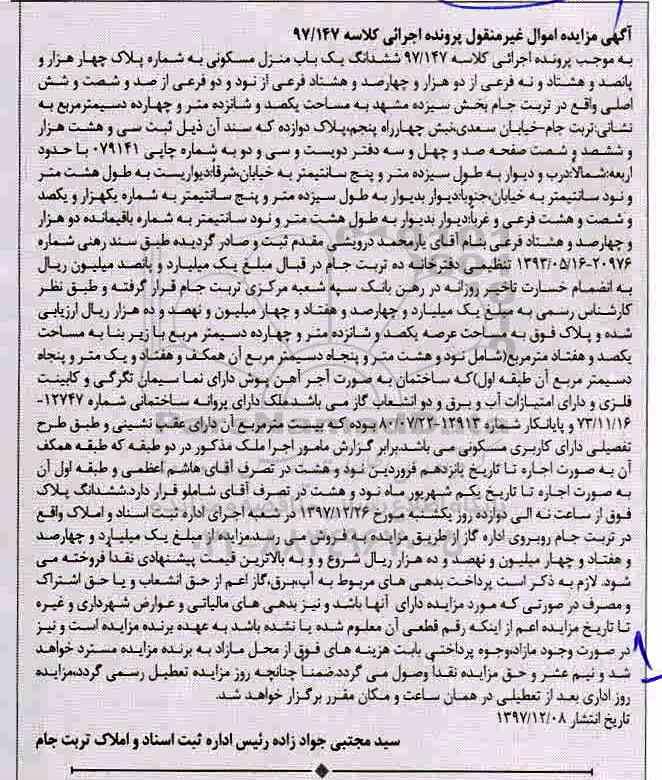 آگهی مزایده اموال غیرمنقول پرونده اجرائی کلاسه ۹۷/۱۴۷
به موجب پرونده اجرائی کلاسه ۹۷/۱۴۷ ششدانگ یک باب منزل مسکونی به شماره پلاک چهار هزار و
پانصد و هشتاد و نه فرعی از دو هزار و چهارصد و هشتاد فرعی از نود و دو فرعی از صد و شصت و شش
اصلی واقع در تربت جام بخش سیزده مشهد به مساحت یکصد و شانزده متر و چهارده دسیمترمربع به
نشانی:تربت جام-خیابان سعدی،نبش چهارراه پنجم،پلاک دوازده که سند آن ذیل ثبت سی و هشت هزار
و ششصد و شصت صفحه صد و چهل و سه دفتر دویست و سی و دو به شماره چاپی ۰۷۹۱۴۱ با حدود
اربعه:شمالاً:درب و دیوار به طول سیزده متر و پنج سانتیمتر به خیابان،شرقاً:دیواریست به طول هشت متر
و نود سانتیمتر به خیابان،جنوبا:دیوار بدیوار به طول سیزده متر و پنج سانتیمتر به شماره یکهزار و یکصد
و شصت و هشت فرعی و غرباً:دیوار بدیوار به طول هشت متر و نود سانتیمتر به شماره باقیمانده دو هزار
و چهارصد و هشتاد فرعی بنام آقای یارمحمد درویشی مقدم ثبت و صادر گردیده طبق سند رهنی شماره
۲۰۹۷۶-۱۳۹۳/۰۵/۱۶ تنظیمی دفترخانه ده تربت جام در قبال مبلغ یک میلیارد و پانصد میلیون ریال
به انضمام خسارت تاخیر روزانه در رهن بانک سپه شعبه مرکزی تربت جام قرار گرفته و طبق نظر
کارشناس رسمی به مبلغ یک میلیارد و چهارصد و هفتاد و چهار میلیون و نهصد و ده هزار ریال ارزیابی
شده و پلاک فوق به مساحت عرصه یکصد و شانزده متر و چهارده دسیمتر مربع با زیر بنا به مساحت
یکصد و هفتاد مترمربع(شامل نود و هشت متر و پنجاه دسیمتر مربع آن همکف و هفتاد و یک متر و پنجاه
دسیمتر مربع آن طبقه اول)که ساختمان به صورت آجر آهن پوش دارای نما سیمان تگرگی و کابینت
فلزی و دارای امتیازات آب و برق و دو انشعاب گاز می باشد.ملک دارای پروانه ساختمانی شماره ۱۲۷۴۷-
۷۳/۱۱/۱۶ و پایانکار شماره ۱۲۹۱۳-۸۰/۰۷/۲۲ بوده که بیست مترمربع آن دارای عقب نشینی و طبق طرح
تفصیلی دارای کاربری مسکونی می باشد.برابر گزارش مامور اجرا ملک مذکور در دو طبقه که طبقه همکف
آن به صورت اجاره تا تاریخ پانزدهم فروردین نود و هشت در تصرف آقای هاشم اعظمی و طبقه اول آن
به صورت اجاره تا تاریخ یکم شهریور ماه نود و هشت در تصرف آقای شاملو قرار دارد.ششدانگ پلاک
فوق از ساعت نه الی دوازده روز یکشنبه مورخ ۱۳۹۷/۱۲/۲۶ در شعبه اجرای اداره ثبت اسناد و املاک واقع
در تربت جام روبروی اداره گاز از طریق مزایده به فروش می رسد.مزایده از مبلغ یک میلیارد و چهارصد
و هفتاد و چهار میلیون و نهصد و ده هزار ریال شروع و و به بالاترین قیمت پیشنهادی نقداً فروخته می
شود. لازم به ذکر است پرداخت بدهی های مربوط به آب،برق،گاز اعم از حق انشعاب و یا حق اشتراک
و مصرف در صورتی که مورد مزایده دارای آنها باشد و نیز بدهی های مالیاتی و عوارض شهرداری و غیره
تا تاریخ مزایده اعم از اینکه رقم قطعی آن معلوم شده یا نشده باشد به عهده برنده مزایده است و نیز
در صورت وجود مازاد،وجوه پرداختی بابت هزینه های فوق از محل مازاد به برنده مزایده مسترد خواهد
شد و نیم عشر و حق مزایده نقداً وصول می گردد.ضمناً چنانچه روز مزایده تعطیل رسمی گردد،مزایده
روز اداری بعد از تعطیلی در همان ساعت و مکان مقرر برگزار خواهد شد.
تاریخ انتشار ۱۳۹۷/۱۲/۰۸
سید مجتبی جواد زاده رئیس اداره ثبت اسناد و املاک تربت جام